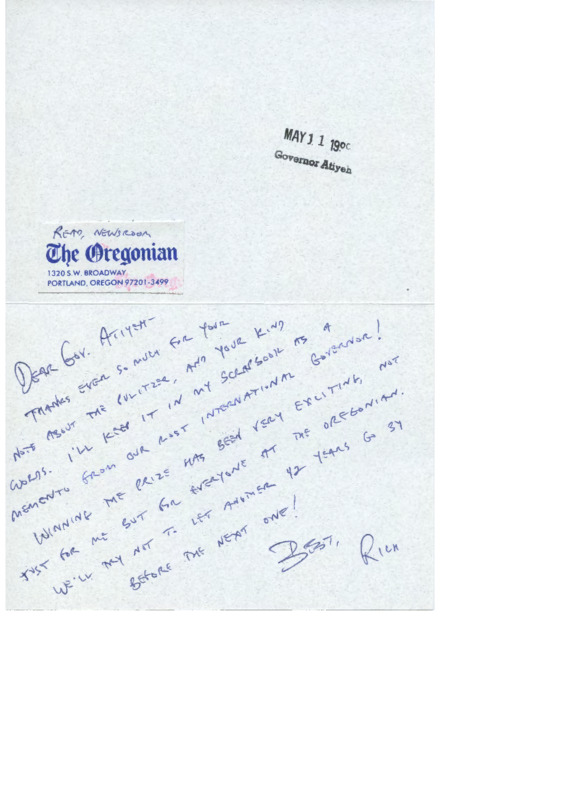 MAY 11 19
Governor Atiyeh
READ, NEWSROOM
The Oregonian
1320 S.W. BROADWAY
PORTLAND, OREGON 97201-3499
DEAR GOV. ATIYEH-
THANKS EVER SO MUCH FOR YOUR
NOTE ABOUT THE PULITZER, AND YOUR KIND
WORDS. I'LL KEEP IT IN MY SCRAPBOOK AS A
MEMENTO FROM OUR MOST INTERNATIONAL GOVERNOR!
WINNING THE PRIZE HAS BEEN VERY EXCITING, NOT
JUST FOR ME BUT FOR EVERYONE AT THE OREGONIAN.
WE'LL TRY NOT TO LET ANOTHER 42 YEARS GO BY
BEFORE THE NEXT ONE!
BEST,
RICH